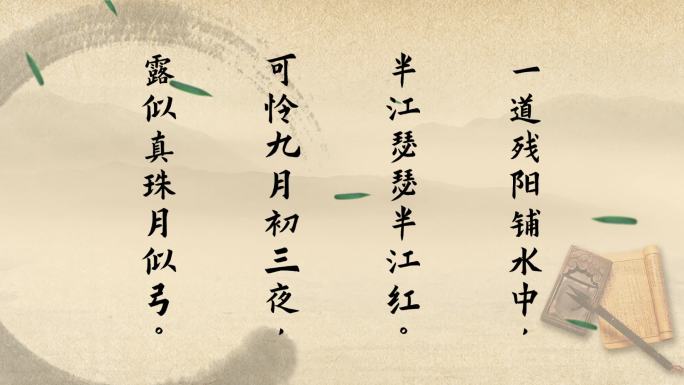 一道残阳铺水中，
半江瑟瑟半江红。
可怜九月初三夜，
露似真珠月似弓。